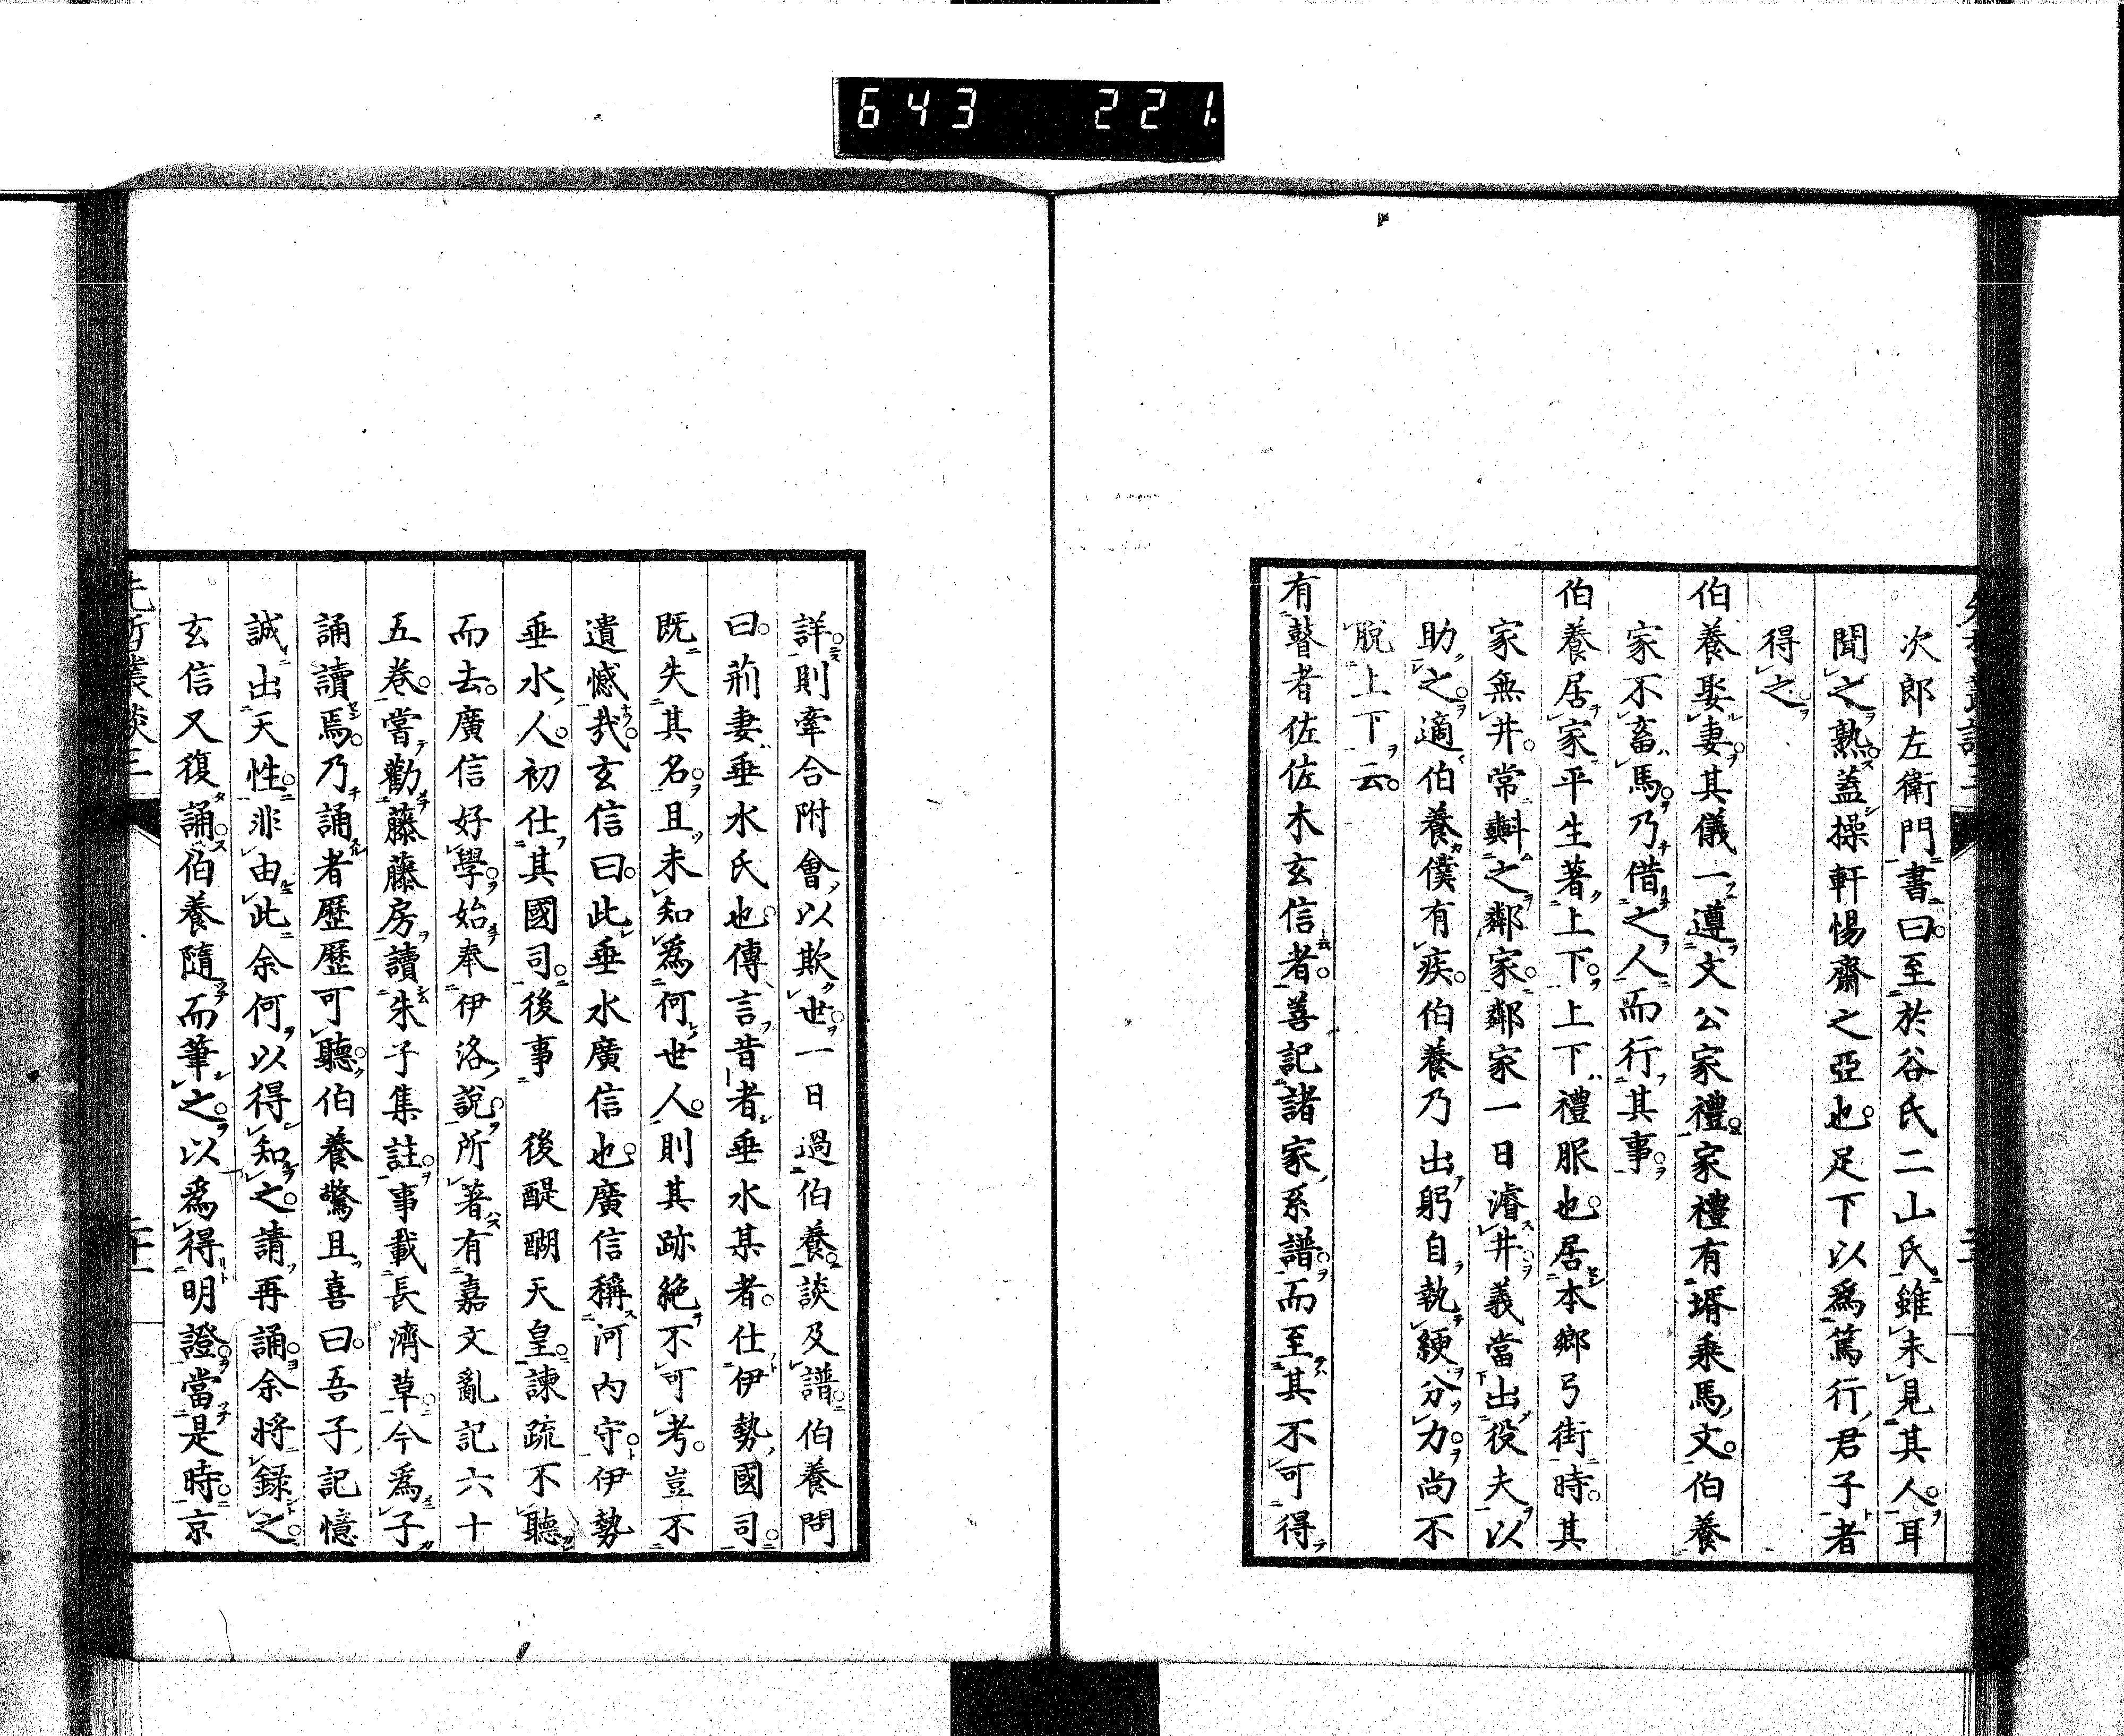 643 221.
次郎左衛門書曰至於谷氏二山氏雖未見其人耳
聞之熟蓋操軒惕齋之亞也足下以爲篤行君子者
得之
伯養娶妻其儀一遵文公家禮家禮有壻乘馬文伯養
家不畜馬乃借之人而行其事
伯養居家平生著上下上下禮服也居本鄉弓街時其
家無井常㪺之鄰家鄰家一日濬井義當出役夫以
助之適伯養僕有疾伯養乃出躬自執綆分力尚不
脫上下云
有瞽者佐佐木玄信者善記諸家系譜而至其不可得
詳則牽合附會以欺世一日過伯養談及譜伯養問
曰荊妻垂水氏也傳言昔者垂水某者仕伊勢國司
既失其名且未知爲何世人則其跡絶不可考豈不
遺憾哉玄信曰此垂水廣信也廣信稱河内守伊勢
垂水人初仕其國司後事 後醍醐天皇諫疏不聽
而去廣信好學始奉伊洛說所著有嘉文亂記六十
五卷嘗勸藤藤房讀朱子集註事載長濟草今爲子
誦讀焉乃誦者歷歷可聽伯養驚且喜曰吾子記憶
誠出天性非由此余何以得知之請再誦余將録之
玄信又復誦伯養隨而筆之以爲得明證當是時京
先哲叢談三